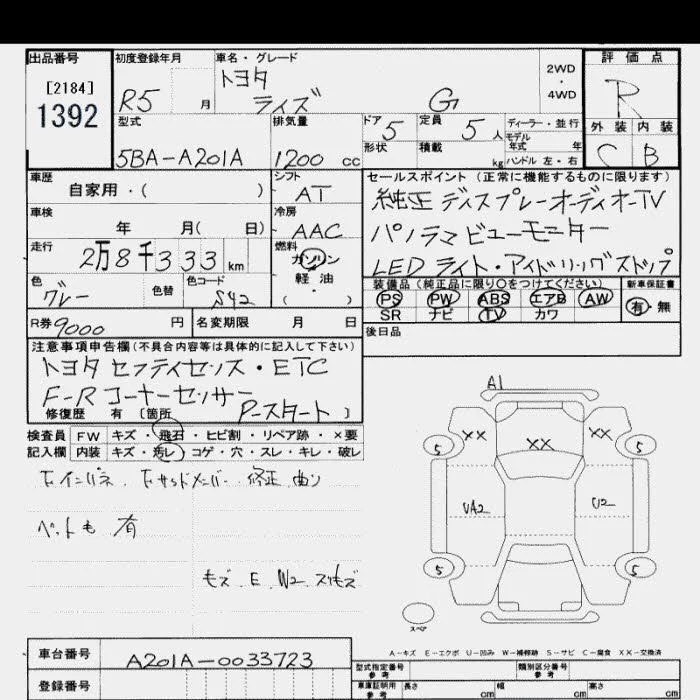 出品番号 初度登録年月 車名・グレード 評価点
[2184] トヨタ 2WD
1392 R5 月 ライズ G ・4WD R
型式 排気量 ドア 5 定員 5人 ディーラー・並行 外装 内装
5BA-A201A 1200 cc 形状 積載 kg モデル年式 年 ハンドル 左・右 C B
車歴 シフト セールスポイント (正常に機能するものに限ります)
自家用・( ) AT 純正ディスプレーオーディオーTV
車検 冷房 パノラマビューモニター
年 月( 日) AAC LEDライト・アイドリングストップ
走行 燃料
2万8千333km ガソリン
色 色替 色コード 軽油
グレー S42 ・( )
装備品 (純正品に限り○をつけてください) 新車保証書
PS PW ABS エアB AW 有・無
SR ナビ TV カワ
R券 9000 円 名変期限 月 日 後日品
注意事項申告欄(不具合内容等は具体的に記入して下さい)
トヨタセフティセンス・ETC
F-Rコーナーセンサー
修復歴 有 〔箇所 P-スタート 〕
検査員 FW キズ・飛石・ヒビ割・リペア跡・×要
記入欄 内装 キズ・汚レ・コゲ・穴・スレ・キレ・破レ
右インパネ 右サッドメンバー 修正 曲り
ペットも 有
キズ E W2 スリキズ
A1
XX XX XX
5 5
UA2 U2
5 5
スペア
A-キズ E-エクボ U-凹み W-補修跡 S-サビ C-腐食 XX-交換済
車台番号 A201A-0033723
登録番号
型式指定番号 参考 類別区分番号 参考
車庫証明用 参考 長さ cm 幅 cm 高さ cm